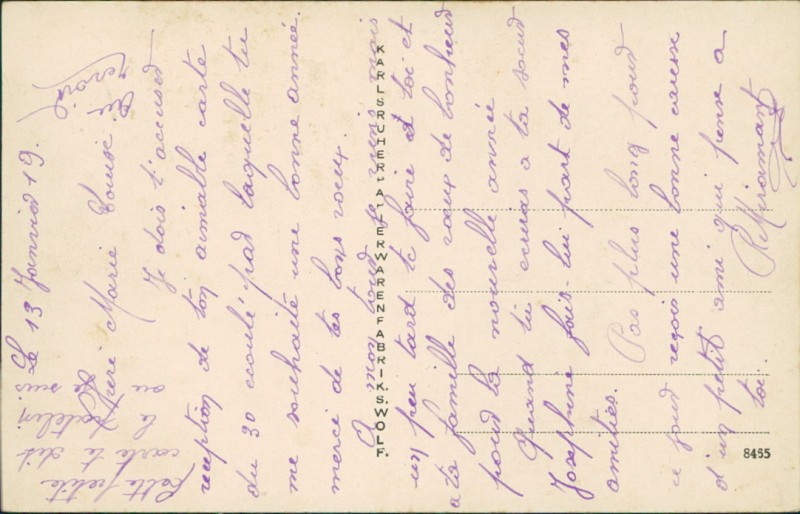 Le 13 Janvier 19.
Chère Marie Louise
Je dois t'accuser
réception de ton aimable carte
du 30 écoulé par laquelle tu
me souhaité une bonne année.
merci de tes bons vœux.
A mon tour je viens mais
un peu tard te faire et toi et
a ta famille des vœux de bonheur
pour la nouvelle année
Quand tu écriras a ta sœur
Joséphine fais-lui part de mes
amitiés.
Pas plus long pour
ce jour reçois une bonne caresse
d'un petit ami qui pense a
toi.
Cette petite
carte te dit
le
ou je suis.
KARLSRUHER-PAPIERWARENFABRIK S.WOLF.
8465